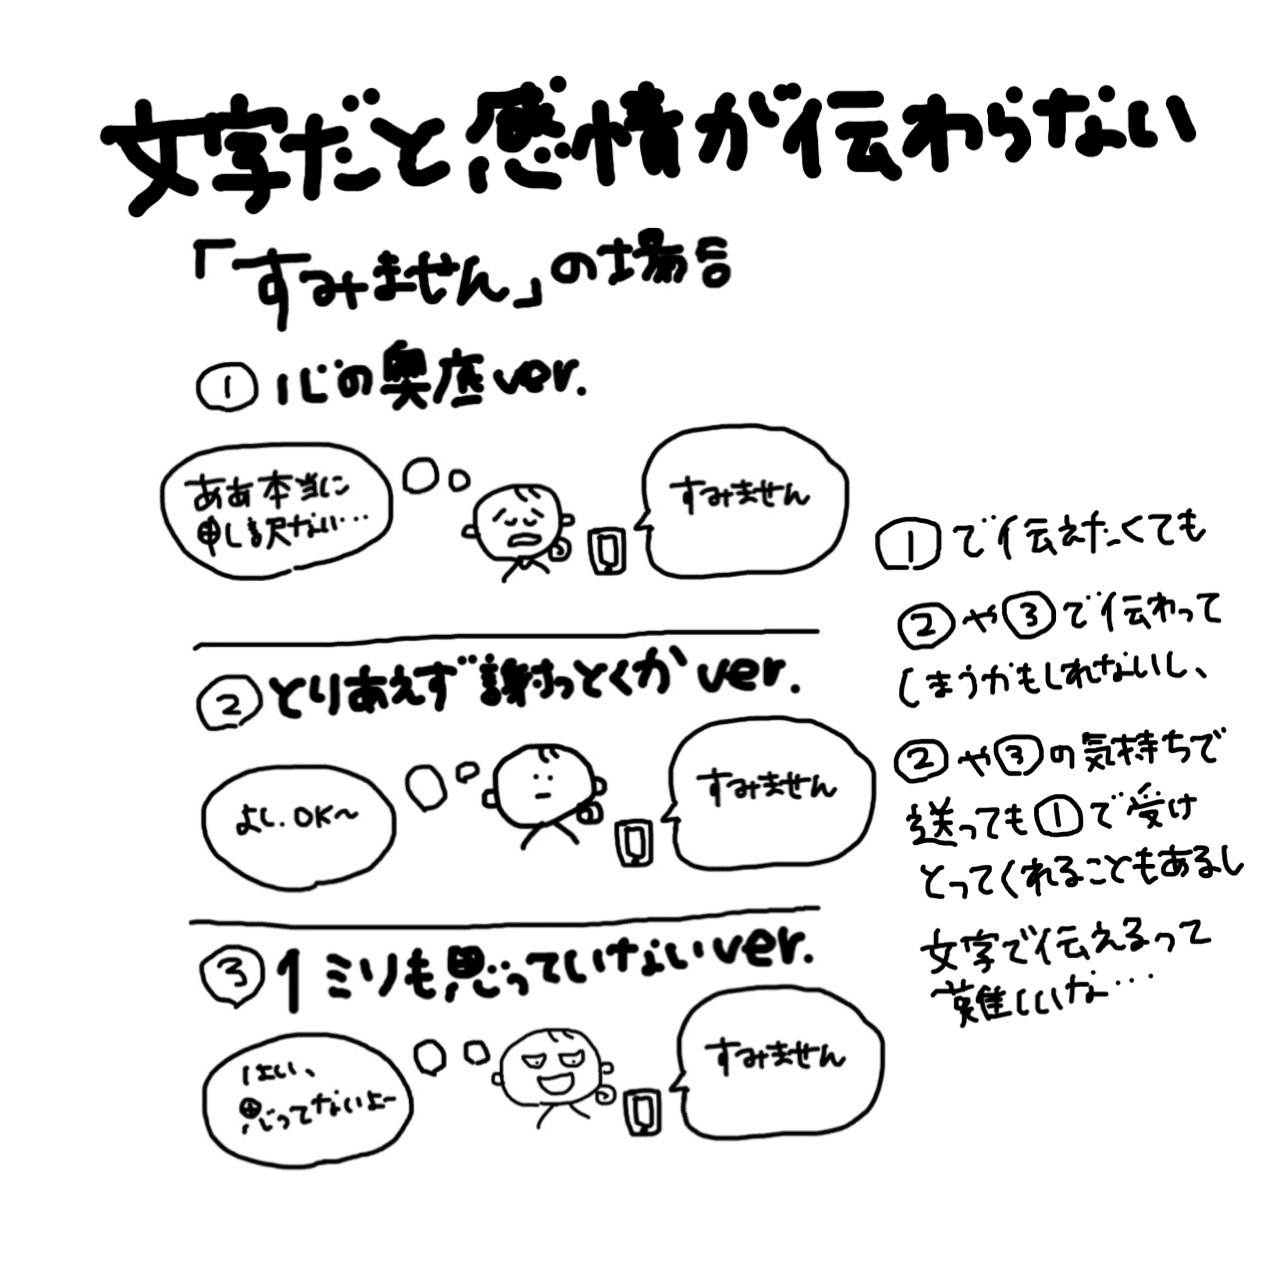 文字だと感情が伝わらない
「すみません」の場合
① 心の奥底ver.
ああ本当に
申し訳ない…
すみません
② とりあえず謝っとくか ver.
よし、OK〜
すみません
③ 1ミリも思っていないver.
はい、
思ってないよ〜
すみません
①で伝えたくても
②や③で伝わって
しまうかもしれないし、
②や③の気持ちで
送っても①で受け
とってくれることもあるし
文字で伝えるって
難しいな…